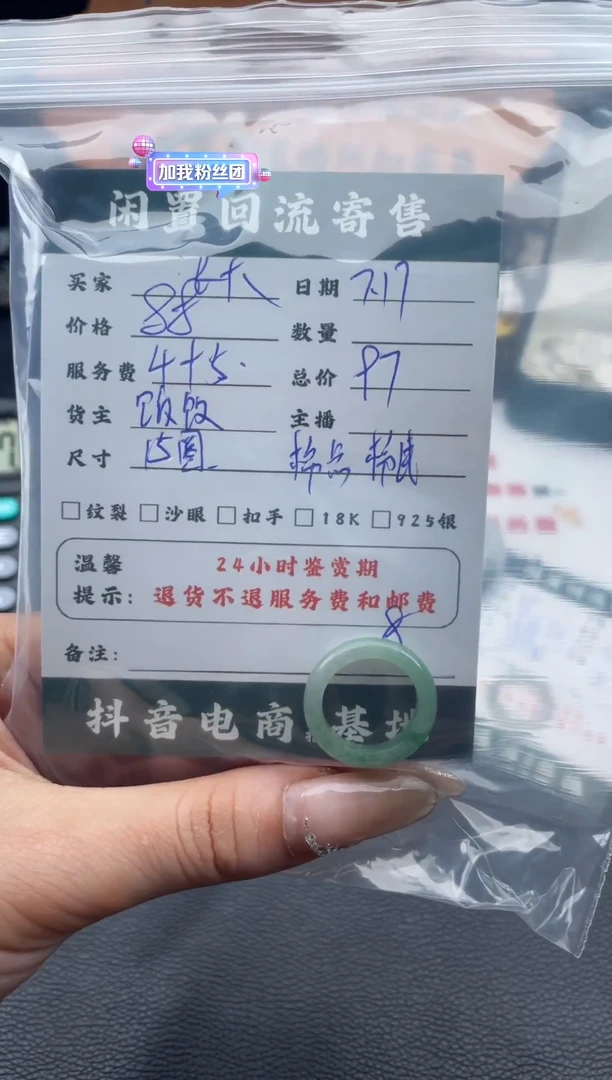 加我粉丝团
闲置回流寄售
买家 日期 7.17
价格 88 数量
服务费 4+5. 总价 97
货主 饭饭 主播
尺寸 15圈 棉点 棉
□纹裂 □沙眼 □扣手 □18K □925银
温馨 24小时鉴赏期
提示: 退货不退服务费和邮费
8
备注:
抖音电商 基地